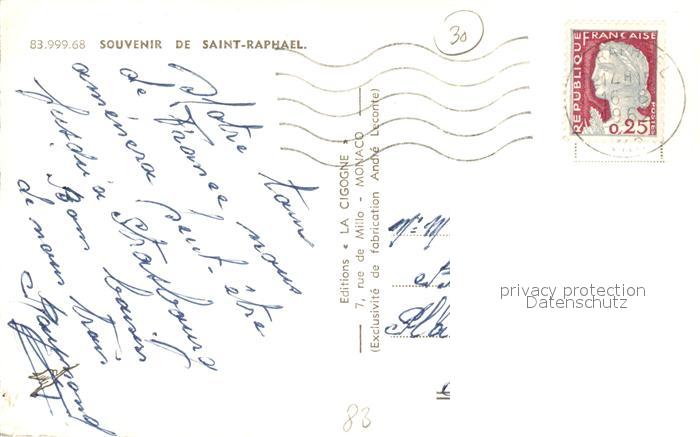 83.999.68 SOUVENIR DE SAINT-RAPHAEL.
30
RÉPUBLIQUE FRANÇAISE
POSTES
0,25F
Notre tour
de France nous
amènera peut-être
jusqu'à Strasbourg
Bons baisers
de nous trois
Editions « LA CIGOGNE »
7, rue de Millo - MONACO
(Exclusivité de fabrication André Leconte)
privacy protection
Datenschutz
83